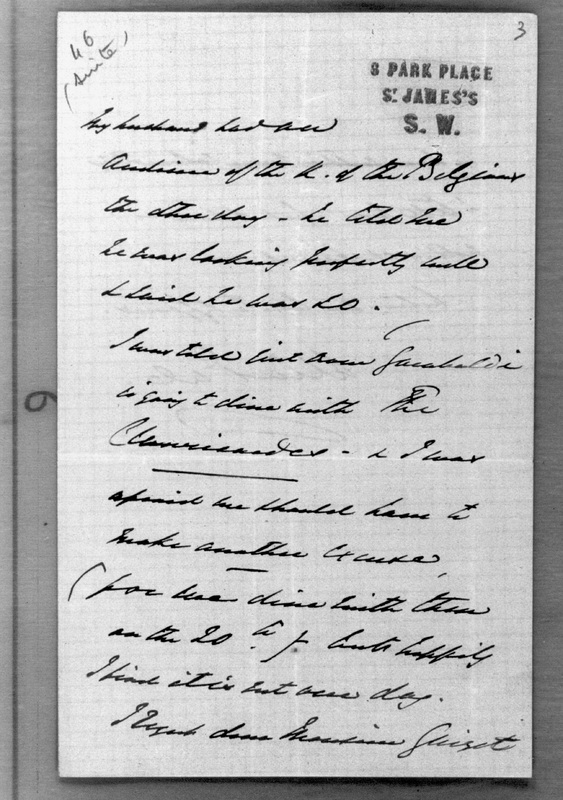 3
46
(suite)
8 PARK PLACE
St. JAMES'S
S. W.
My husband had an
Audience of the K. of the Belgians
the other day - he told me
he was looking perfectly well
& said he was so.
I was told just now Garibaldi
is going to dine with The
Clanricardes - & I was
afraid we should have to
make another excuse,
(for we dine with them
on the 20th) but happily
I find it is not our day.
dear Monsieur Guizot
6